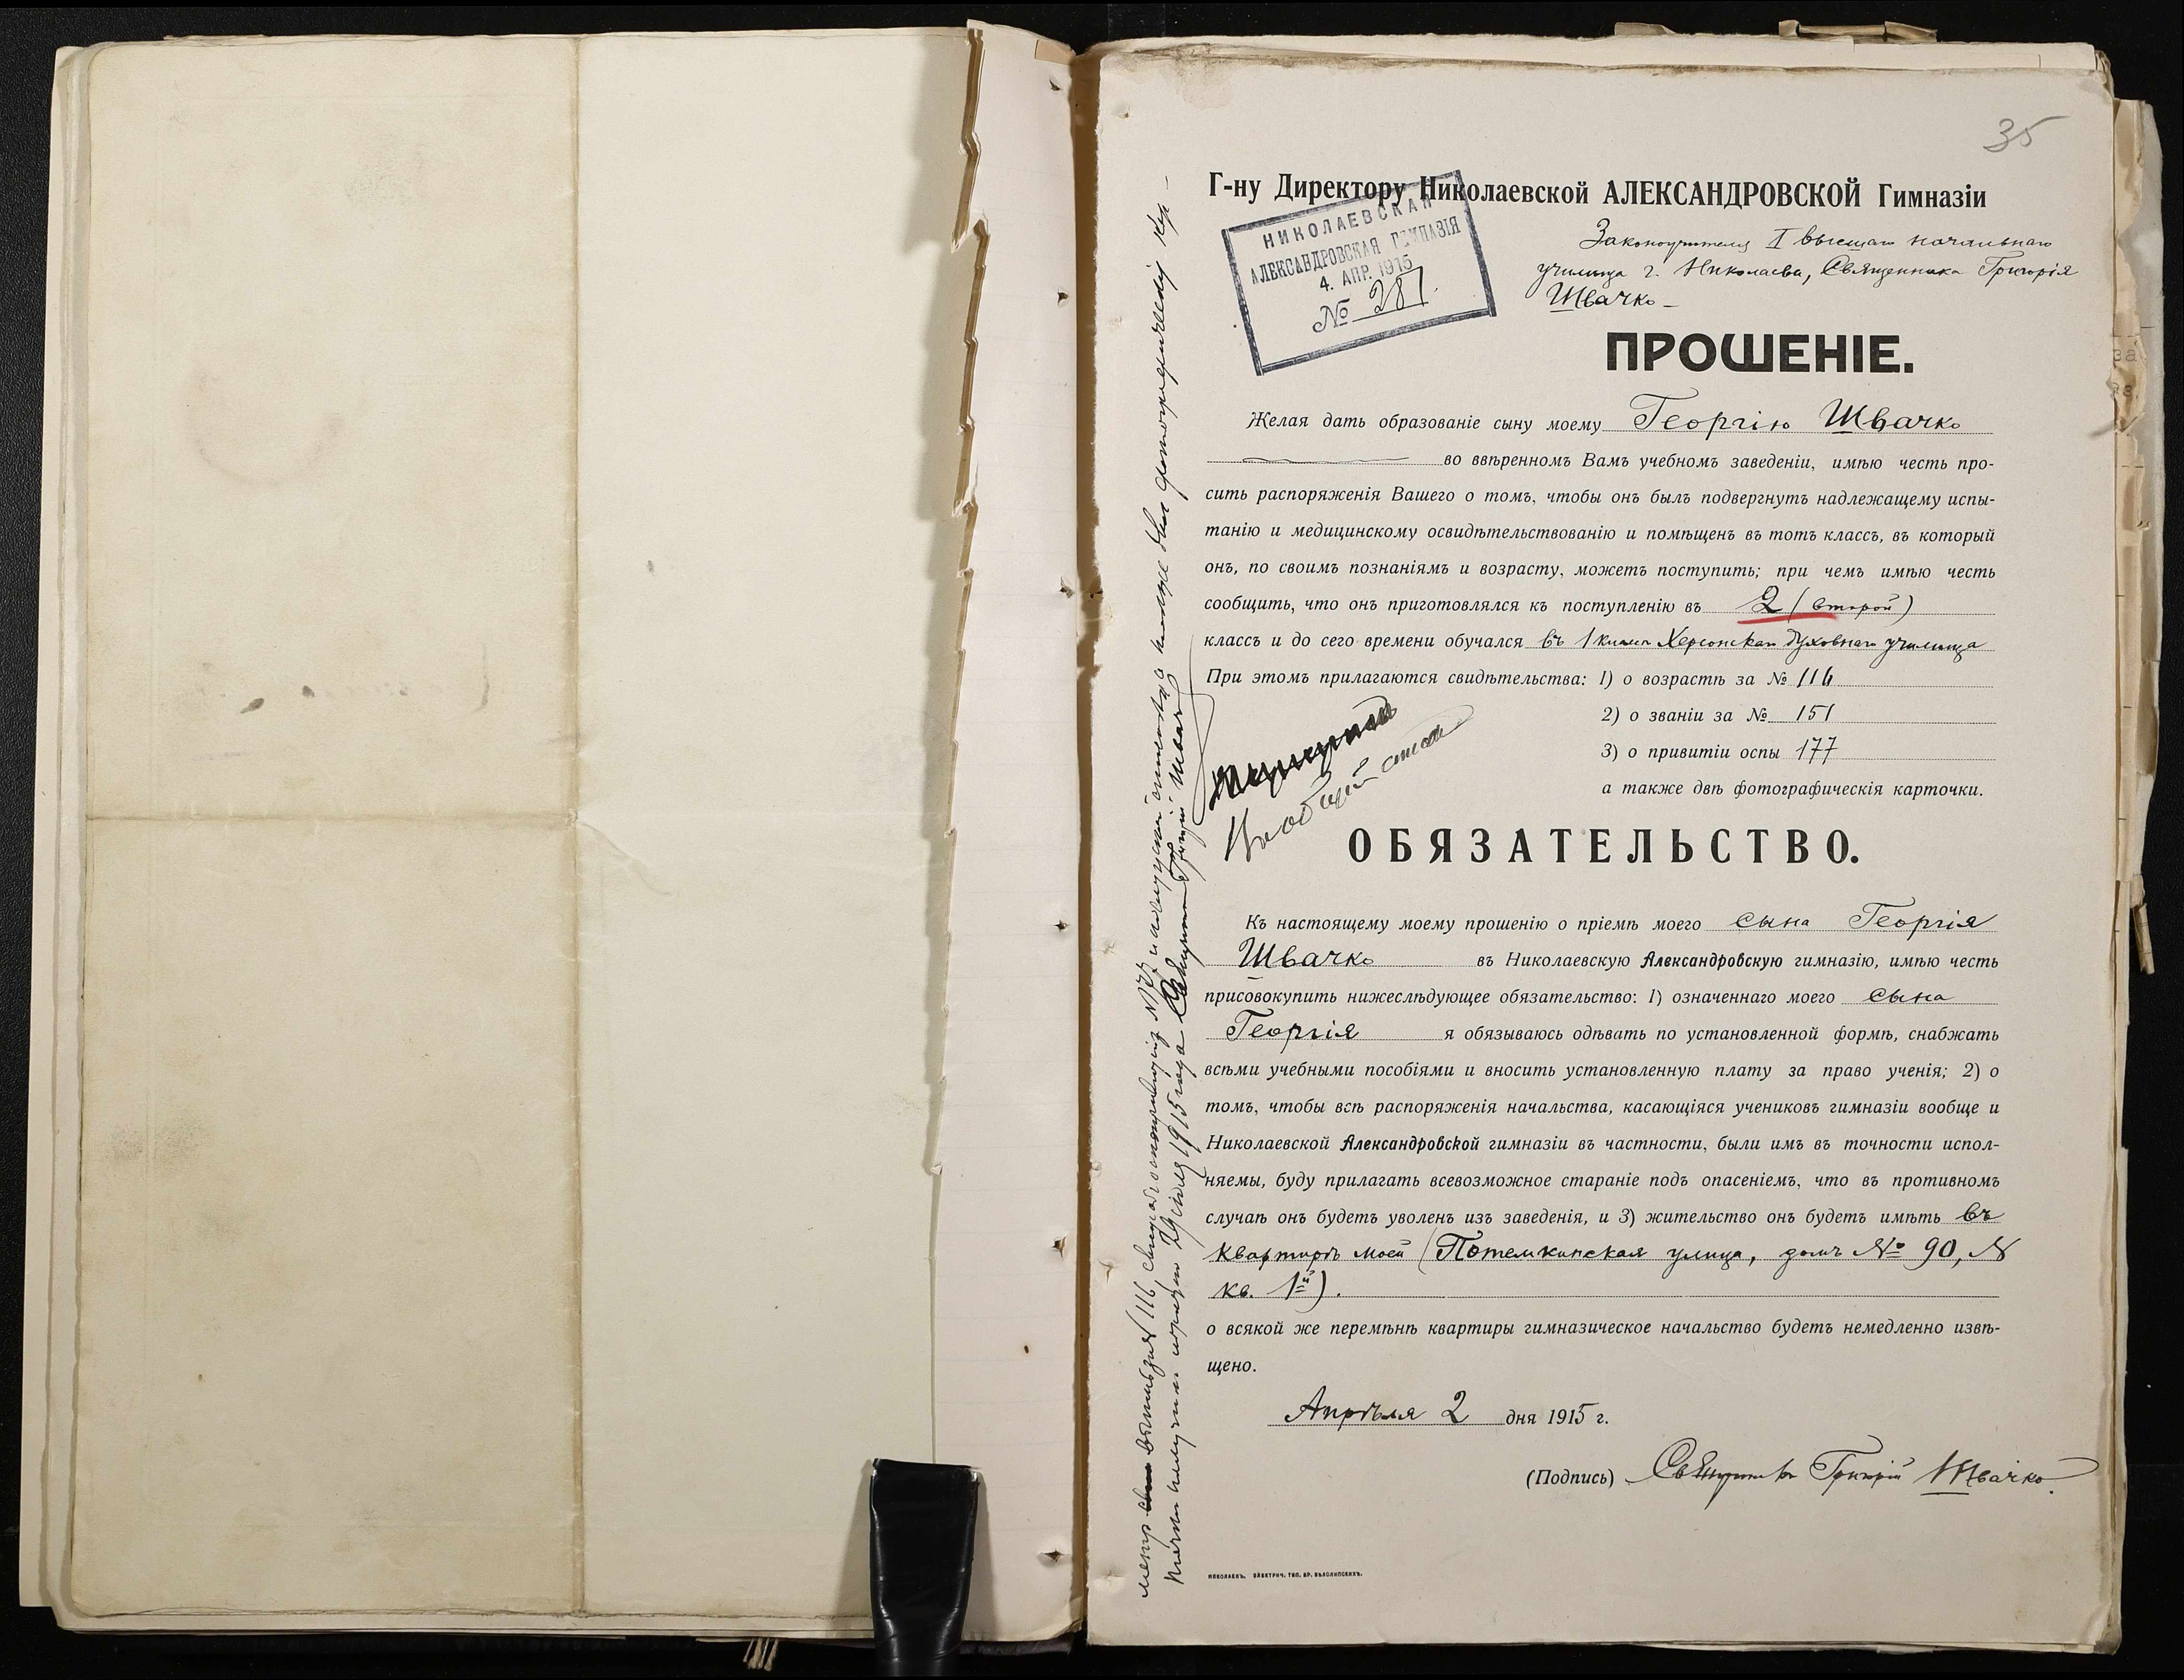 35
Г-ну Директору Николаевской АЛЕКСАНДРОВСКОЙ Гимназіи
НИКОЛАЕВСКАЯ
АЛЕКСАНДРОВСКАЯ ГИМНАЗІЯ
4. АПР. 1915
№ 287.
Законоучителя I высшаго начальнаго
училища г. Николаева, Священника Григорія
Швачко
ПРОШЕНІЕ.
Желая дать образованіе сыну моему Георгію Швачко
во ввѣренномъ Вамъ учебномъ заведеніи, имѣю честь про-
сить распоряженія Вашего о томъ, чтобы онъ былъ подвергнутъ надлежащему испы-
танію и медицинскому освидѣтельствованію и помѣщенъ въ тотъ классъ, въ который
онъ, по своимъ познаніямъ и возрасту, можетъ поступить; при чемъ имѣю честь
сообщить, что онъ приготовлялся къ поступленію въ 2 (второй)
классъ и до сего времени обучался въ 1 классѣ Херсонскаго духовнаго училища
При этомъ прилагаются свидѣтельства: 1) о возрастѣ за № 116
2) о званіи за № 151
3) о привитіи оспы 177
а также двѣ фотографическія карточки.
ОБЯЗАТЕЛЬСТВО.
Къ настоящему моему прошенію о пріемѣ моего сына Георгія
Швачко въ Николаевскую Александровскую гимназію, имѣю честь
присовокупить нижеслѣдующее обязательство: 1) означеннаго моего сына
Георгія я обязываюсь одѣвать по установленной формѣ, снабжать
всѣми учебными пособіями и вносить установленную плату за право ученія; 2) о
томъ, чтобы всѣ распоряженія начальства, касающіяся учениковъ гимназіи вообще и
Николаевской Александровской гимназіи въ частности, были имъ въ точности испол-
няемы, буду прилагать всевозможное стараніе подъ опасеніемъ, что въ противномъ
случаѣ онъ будетъ уволенъ изъ заведенія, и 3) жительство онъ будетъ имѣть въ
квартирѣ моей (Потемкинская улица, домъ № 90, №
кв. 1й).
о всякой же перемѣнѣ квартиры гимназическое начальство будетъ немедленно извѣ-
щено.
Апрѣля 2 дня 1915 г.
(Подпись) Священникъ Григорій Швачко.
НИКОЛАЕВЪ, ЭЛЕКТРИЧ. ТИП. БР. БѢЛОЛИПСКИХЪ.
№ 116, № 177
1915 года Священникъ Григорій Швачко